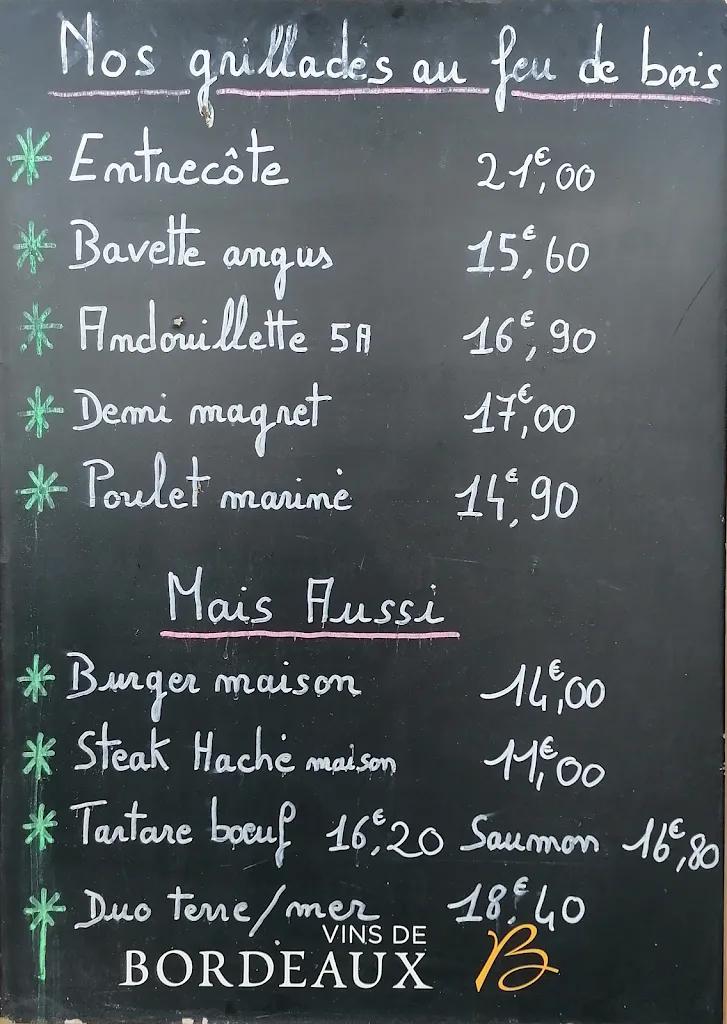 Nos grillades au feu de bois
Entrecôte 21€,00
Bavette angus 15€,60
Andouillette 5A 16€,90
Demi magret 17€,00
Poulet mariné 14€,90
Mais Aussi
Burger maison 14€,00
Steak Haché maison 11€,00
Tartare bœuf 16€,20 Saumon 16€,80
Duo terre/mer 18€,40
VINS DE
BORDEAUX B